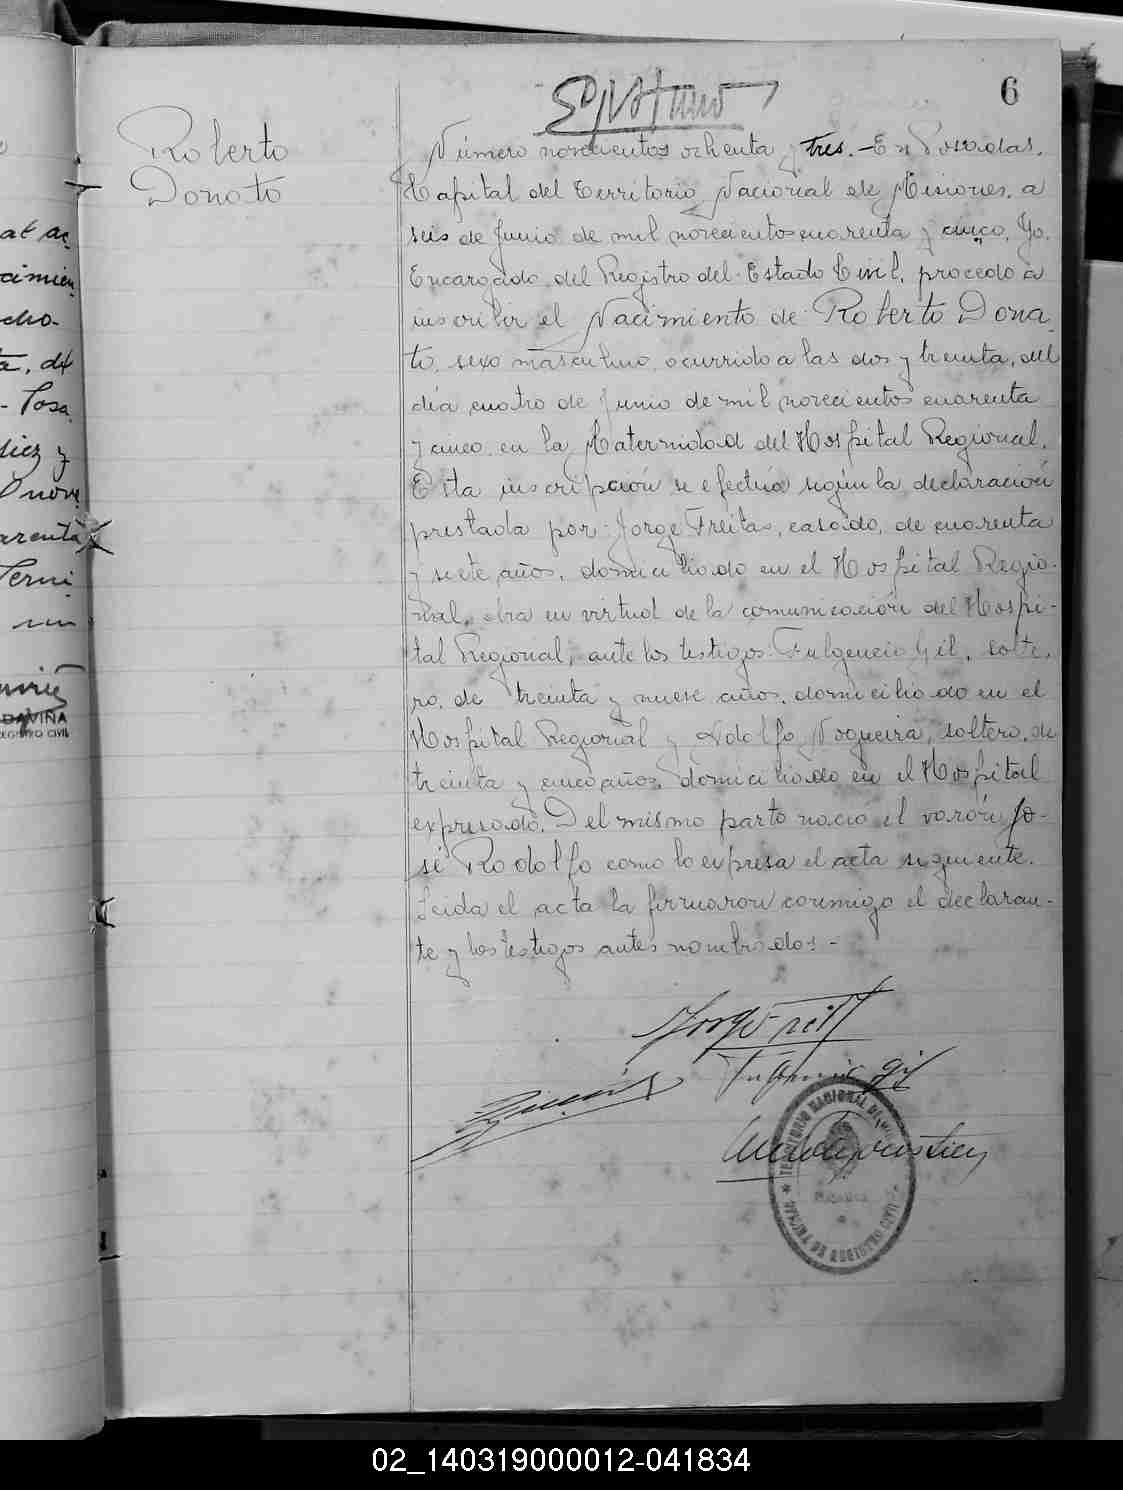 6
Roberto
Donato
Número novecientos ochenta y tres.- En Posadas,
Capital del Territorio Nacional de Misiones, a
seis de Junio de mil novecientos cuarenta y cinco, Yo,
Encargado del Registro del Estado Civil, procedo a
inscribir el Nacimiento de Roberto Dona
to, sexo masculino, ocurrido a las dos y treinta, del
día cuatro de Junio de mil novecientos cuarenta
y cinco, en la Maternidad del Hospital Regional.
Esta inscripción se efectúa según la declaración
prestada por Jorge Freitas, casado, de cuarenta
y siete años, domiciliado en el Hospital Regio-
nal, obra en virtud de la comunicación del Hospi-
tal Regional, ante los testigos: Fulgencio Gil, solte,
ro, de treinta y nueve años, domiciliado en el
Hospital Regional y Adolfo Nogueira, soltero, de
treinta y cinco años, domiciliado en el Hospital
expresado. Del mismo parto nació el varón Jo-
sé Rodolfo como lo expresa el acta siguiente.
Leida el acta la firmaron conmigo el declaran-
te y los testigos antes nombrados-
at ac
cimien
cho-
ta, de
- Posa
diez y
arenta
un
DAVIÑA
REGISTRO CIVIL
TERRITORIO NACIONAL DE
02_140319000012-041834